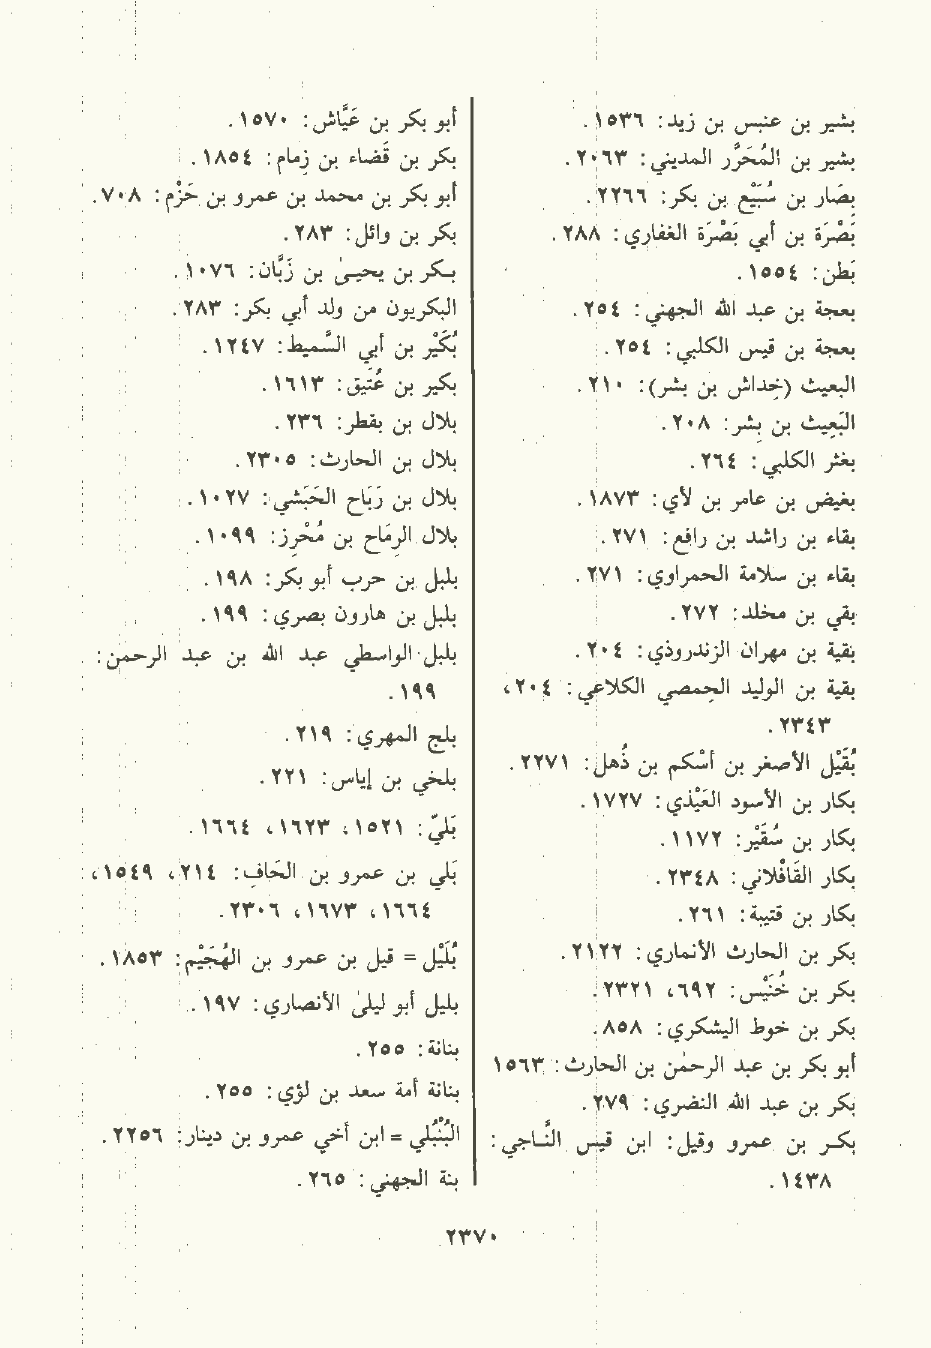 بشير بن عنبس بن زيد: ١٥٣٦.
بشير بن المُحَرَّر المديني: ٢٠٦٣.
بِصَار بن سُبَيْع بن بكر: ٢٢٦٦.
بَصْرَة بن أبي بَصْرَة الغفاري: ٢٨٨.
بَطن: ١٥٥٤.
بعجة بن عبد الله الجهني: ٢٥٤.
بعجة بن قيس الكلبي: ٢٥٤.
البعيث (خِداش بن بشر): ٢١٠.
البَعِيث بن بِشر: ٢٠٨.
بغثر الكلبي: ٢٦٤.
بغيض بن عامر بن لأي: ١٨٧٣.
بقاء بن راشد بن رافع: ٢٧١.
بقاء بن سلامة الحمراوي: ٢٧١.
بقي بن مخلد: ٢٧٢.
بقية بن مهران الزندروذي: ٢٠٤.
بقية بن الوليد الحِمصي الكلاعي: ٢٠٤،
٢٣٤٣.
بُقَيْل الأصغر بن أسْكم بن ذُهل: ٢٢٧١.
بكار بن الأسود العَيْذي: ١٧٢٧.
بكار بن سُقَيْر: ١١٧٢.
بكار القَافْلاني: ٢٣٤٨.
بكار بن قتيبة: ٢٦١.
بكر بن الحارث الأنماري: ٢١٢٢.
بكر بن خُنَيْس: ٦٩٢، ٢٣٢١.
بكر بن خوط اليشكري: ٨٥٨.
أبو بكر بن عبد الرحمٰن بن الحارث: ١٥٦٣
بكر بن عبد الله النضري: ٢٧٩.
بكر بن عمرو وقيل: ابن قيس النَّاجي:
١٤٣٨.
أبو بكر بن عَيَّاش: ١٥٧٠.
بكر بن قَضاء بن زِمام: ١٨٥٤.
أبو بكر بن محمد بن عمرو بن حَزْم: ٧٠٨.
بكر بن وائل: ٢٨٣.
بكر بن يحيىٰ بن زَبَّان: ١٠٧٦.
البكريون من ولد أبي بكر: ٢٨٣.
بُكَيْر بن أبي السَّميط: ١٢٤٧.
بكير بن عُتَيق: ١٦١٣.
بلال بن بقطر: ٢٣٦.
بلال بن الحارث: ٢٣٠٥.
بلال بن رَبَاح الحَبَشي: ١٠٢٧.
بلال الرِمَاح بن مُحْرِز: ١٠٩٩.
بلبل بن حرب أبو بكر: ١٩٨.
بلبل بن هارون بصري: ١٩٩.
بلبل الواسطي عبد الله بن عبد الرحمن:
١٩٩.
بلج المهري: ٢١٩.
بلخي بن إياس: ٢٢١.
بَليّ: ١٥٢١، ١٦٢٣، ١٦٦٤.
بَلي بن عمرو بن الحَافِ: ٢١٤، ١٥٤٩،
١٦٦٤، ١٦٧٣، ٢٣٠٦.
بُلَيْل = قيل بن عمرو بن الهُجَيْم: ١٨٥٣.
بليل أبو ليلىٰ الأنصاري: ١٩٧.
بنانة: ٢٥٥.
بنانة أمة سعد بن لؤي: ٢٥٥.
البُنْبُلي = ابن أخي عمرو بن دينار: ٢٢٥٦.
بنة الجهني: ٢٦٥.
٢٣٧٠